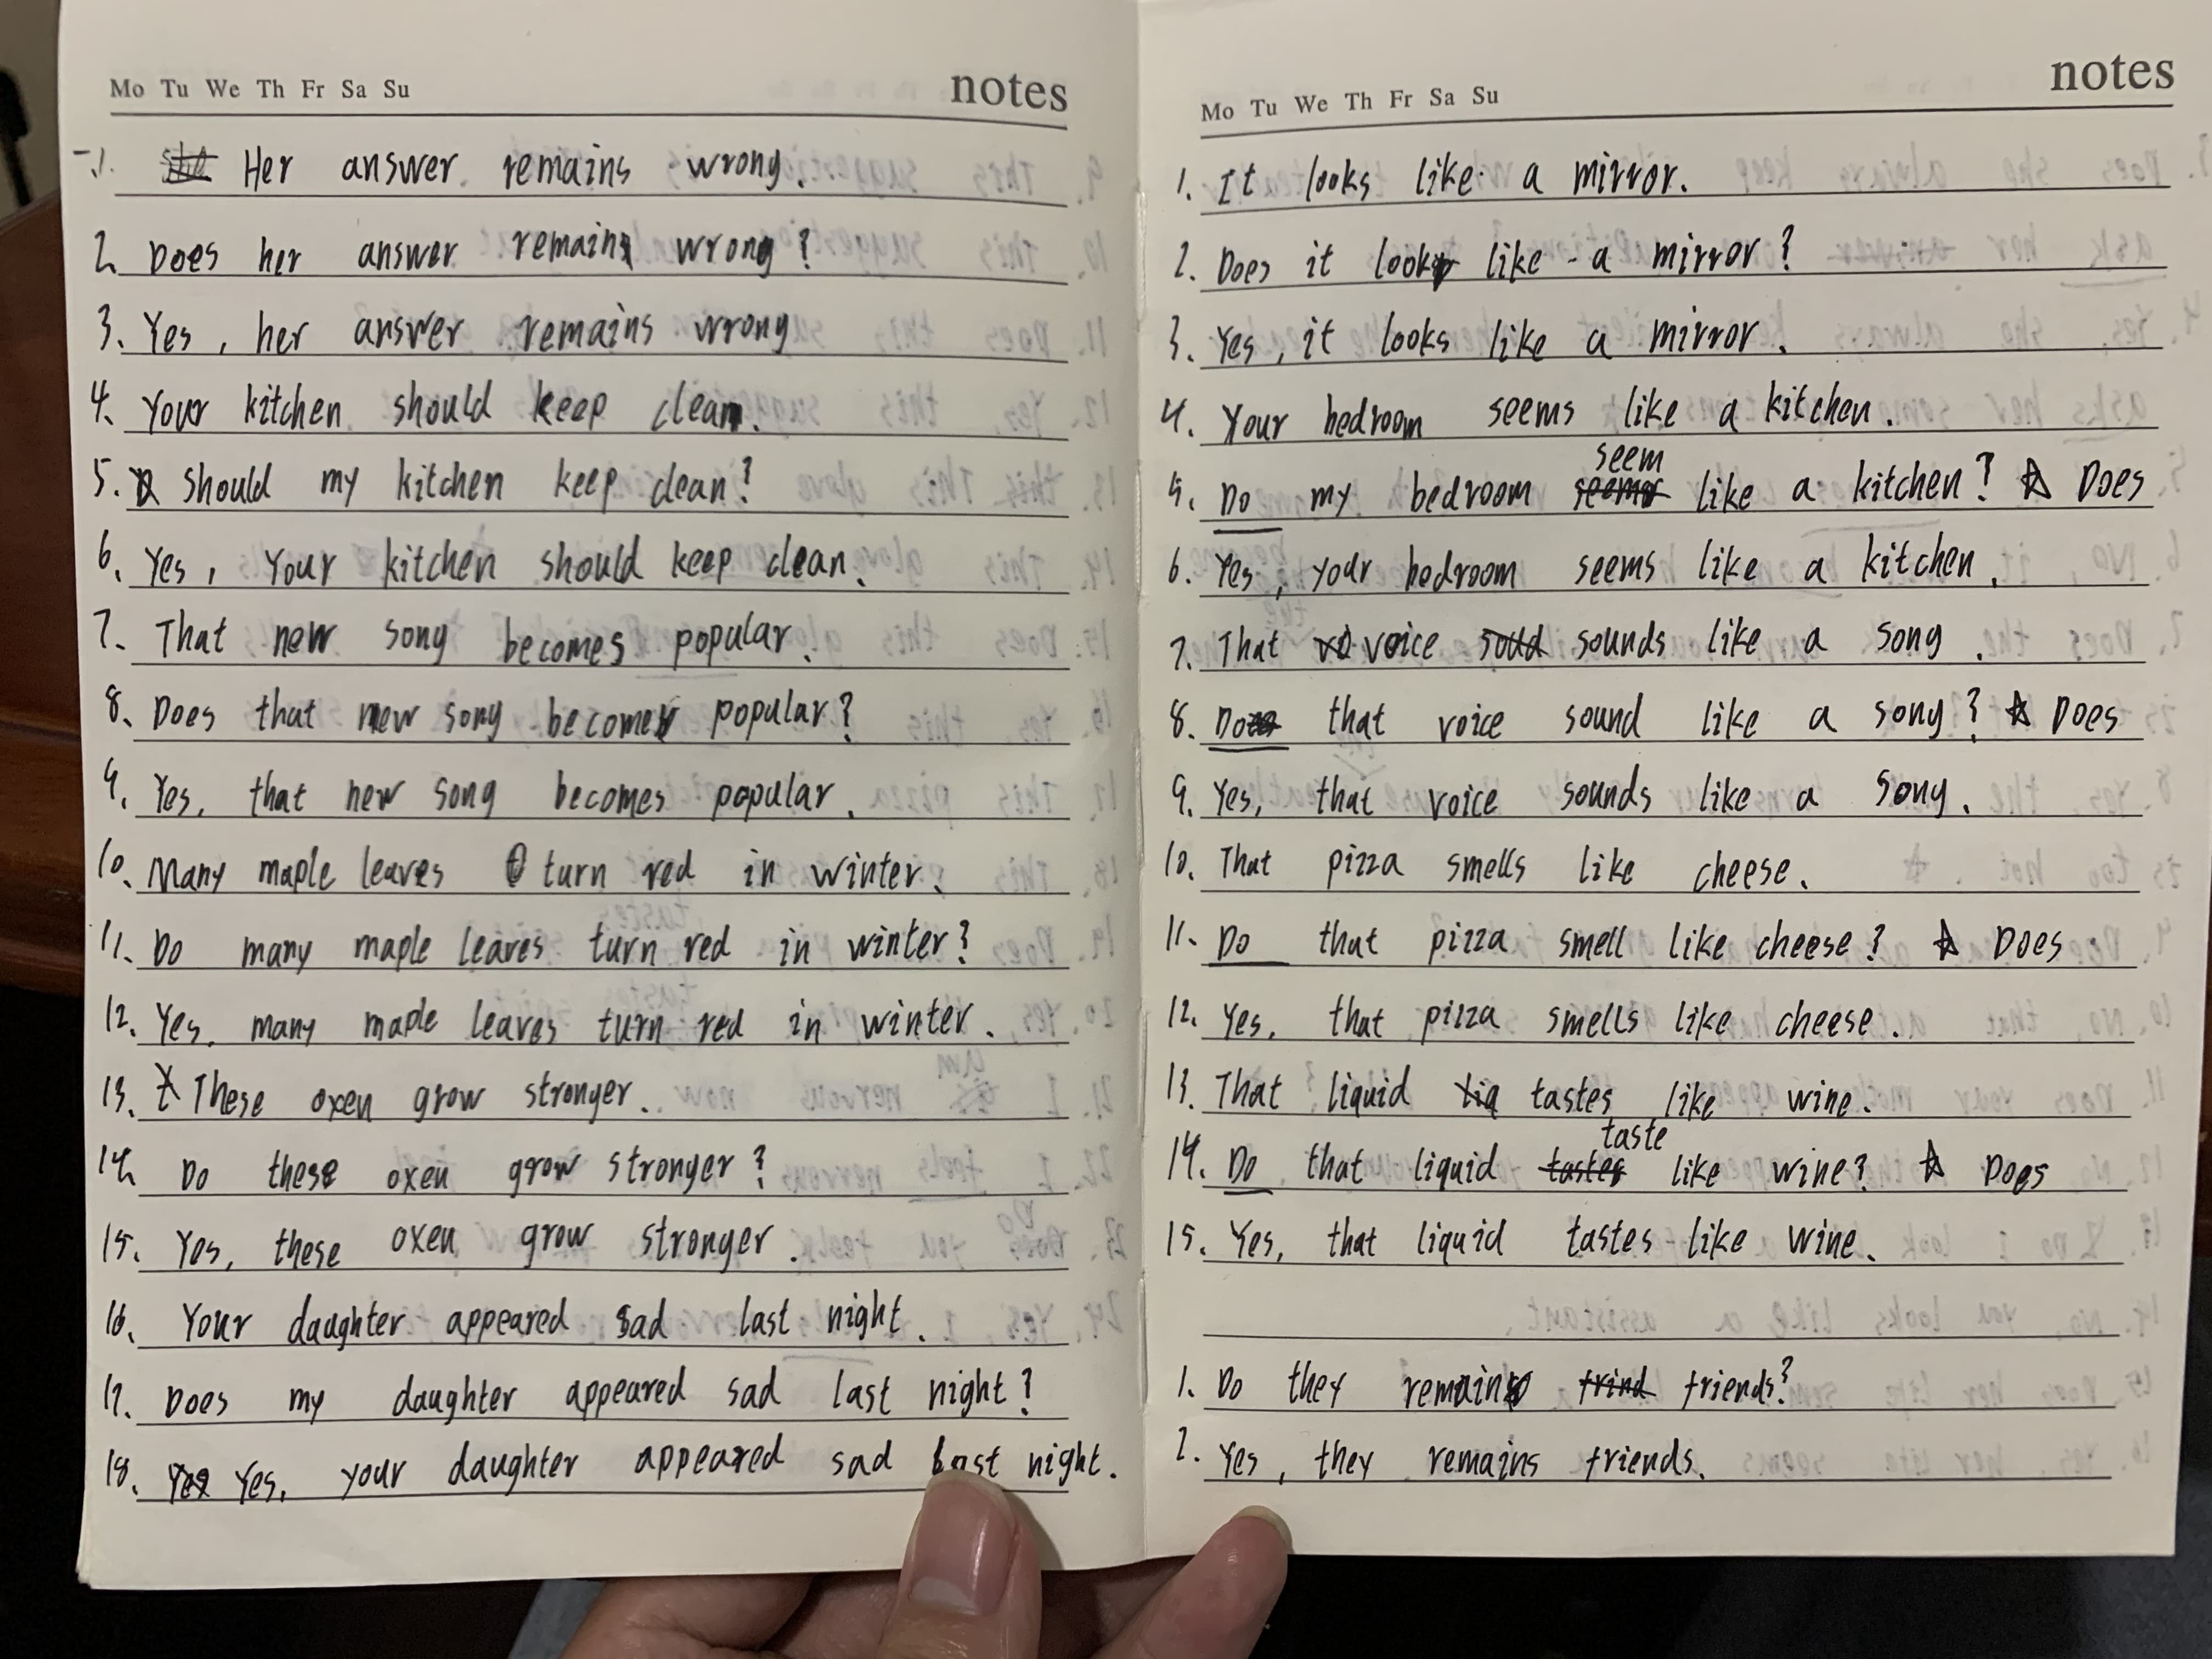 Mo Tu We Th Fr Sa Su notes
1. Her answer remains wrong.
2. Does her answer remain wrong?
3. Yes, her answer remains wrong
4. Your kitchen should keep clean.
5. Should my kitchen keep clean?
6. Yes, Your kitchen should keep clean.
7. That new song becomes popular.
8. Does that new song become popular?
9. Yes, that new song becomes popular.
10. Many maple leaves turn red in winter.
11. Do many maple leaves turn red in winter?
12. Yes, many maple leaves turn red in winter.
13. These oxen grow stronger.
14. Do these oxen grow stronger?
15. Yes, these oxen grow stronger.
16. Your daughter appeared sad last night.
17. Does my daughter appeared sad last night?
18. Yes, your daughter appeared sad last night.
Mo Tu We Th Fr Sa Su notes
1. It looks like a mirror.
2. Does it look like a mirror?
3. Yes, it looks like a mirror.
4. Your bedroom seems like a kitchen.
5. Do my bedroom seem like a kitchen? ☆ Does
6. Yes, your bedroom seems like a kitchen.
7. That voice sounds like a song.
8. Do that voice sound like a song? ☆ Does
9. Yes, that voice sounds like a song.
10. That pizza smells like cheese.
11. Do that pizza smell like cheese? ☆ Does
12. Yes, that pizza smells like cheese.
13. That liquid tastes like wine.
14. Do that liquid taste like wine? ☆ Does
15. Yes, that liquid tastes like wine.
1. Do they remain friends?
2. Yes, they remains friends.